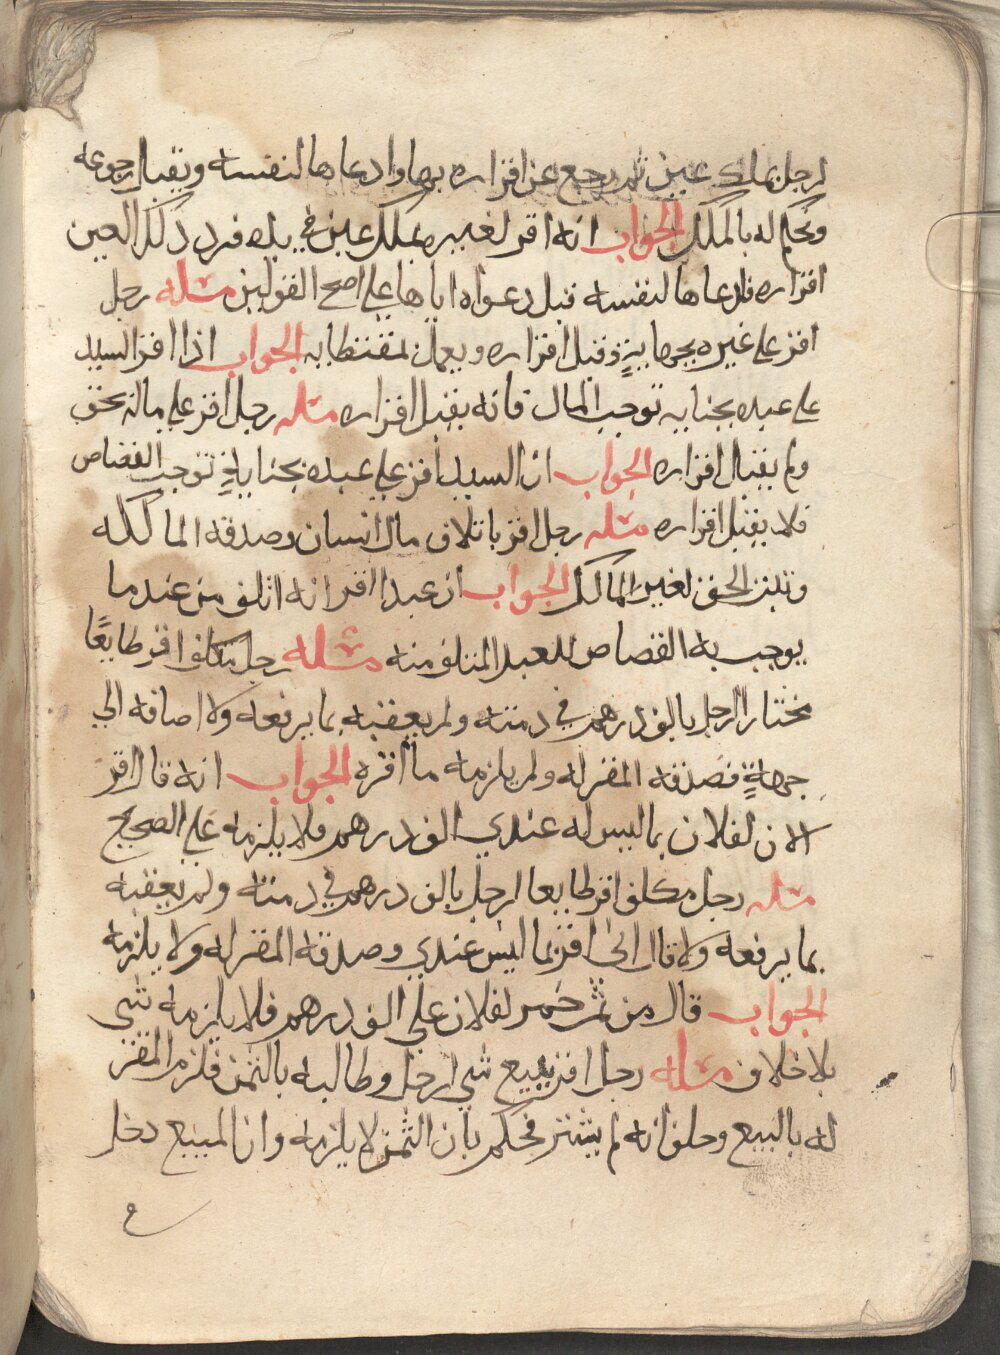 لرجل بملك عين ثم رجع عن اقراره بها وادعاها لنفسه ويقبل رجوعه
وتحكم له بالملك الجواب انه اقر لغيره بملك عين في يده فرد ذلك العين
اقراره فادعاها لنفسه قبل دعواه اياها علي اصح القولين مثله رجل
اقر علي غيره بجنايةٍ وقبل اقراره ويعمل بمقتضا به الجواب اذا اقر السيد
علي عبده بجنايه توجب المال فانه يقبل اقراره مثله رجل اقر علي ماله بحق
ولم يقبل اقراره الجواب ان السيد اقر علي عبده بجنايةٍ توجب القصاص
فلا يقبل اقراره مثله رجل اقر باتلاف مال انسان وصدقه المالك له
وثبت الحق لغير المالك الجواب ان عبدا اقر انه اتلف من عند ما
يوجب به القصاص للعبد المتلف منه مثله رجل مكلف اقر طايعًا
مختارا لرجل بالف درهم في دمته ولم يعقبه بما يرفعه ولا اضافه الي
جهةٍ فصدقه المقر له ولم يلزمه ما اقر به الجواب انه قال اقر
الان لفلان بما ليس له عندي الف درهم فلا يلزمه علي الصحيح
مثله رجل مكلف اقر طايعا لرجل بالف درهم في دمته ولم يعقبه
بما يرفعه ولا قال اني اقر بما ليس عندي وصدقه المقر له ولا يلزمه
الجواب قال من ثمن خمر لفلان علي الف درهم فلا يلزمه شي
بلا خلاف مثله رجل اقر ببيع شي لرجل وطالبه بالثمن فلزم المقر
له بالبيع وحلف انه لم يشتر فحكم بان الثمن لا يلزمه وان المبيع دخل